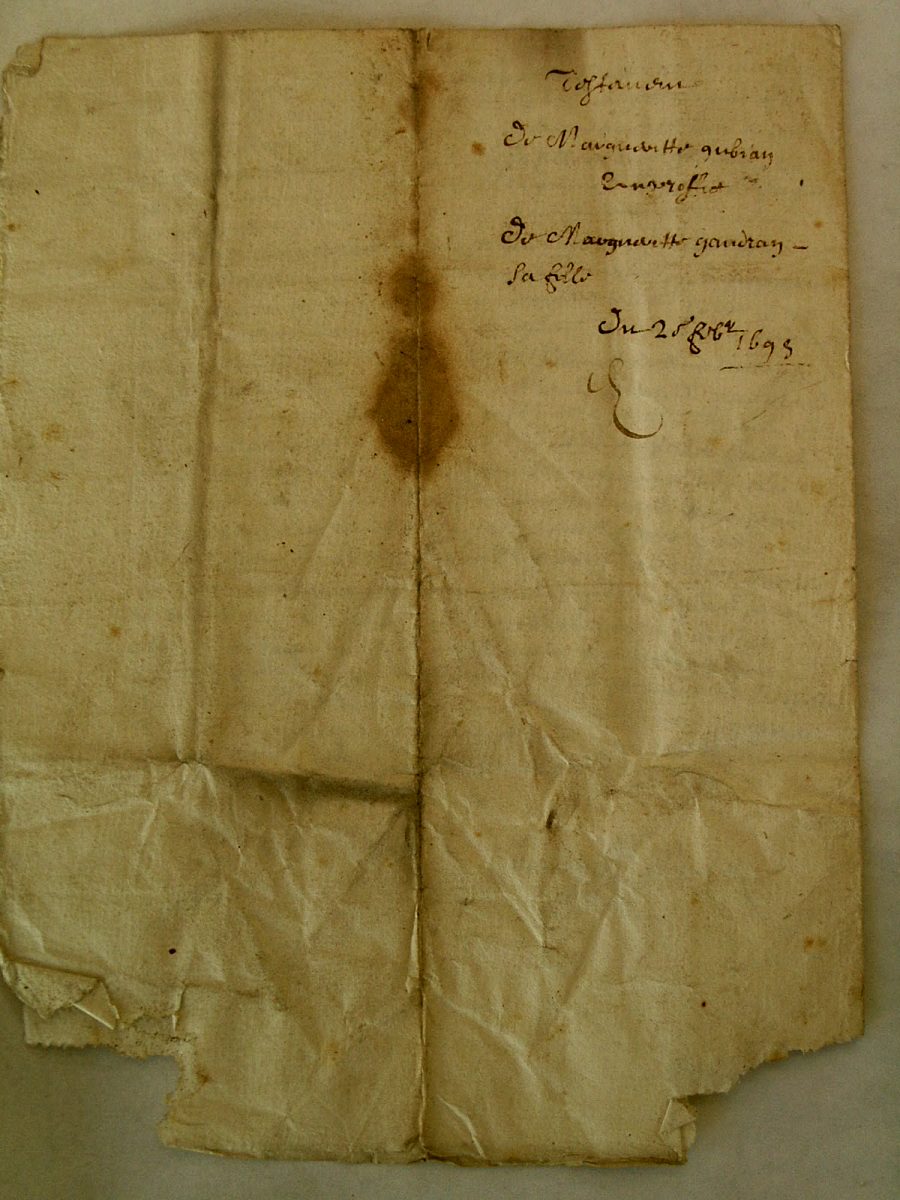 Testament
De Margueritte gubian
En proffit
De Margueritte gaudran
sa fille
Du 25 febr 1693